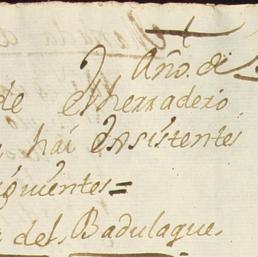 Año. de
de el herradero
hai Ensistentes
iguientes=
del Badulaque